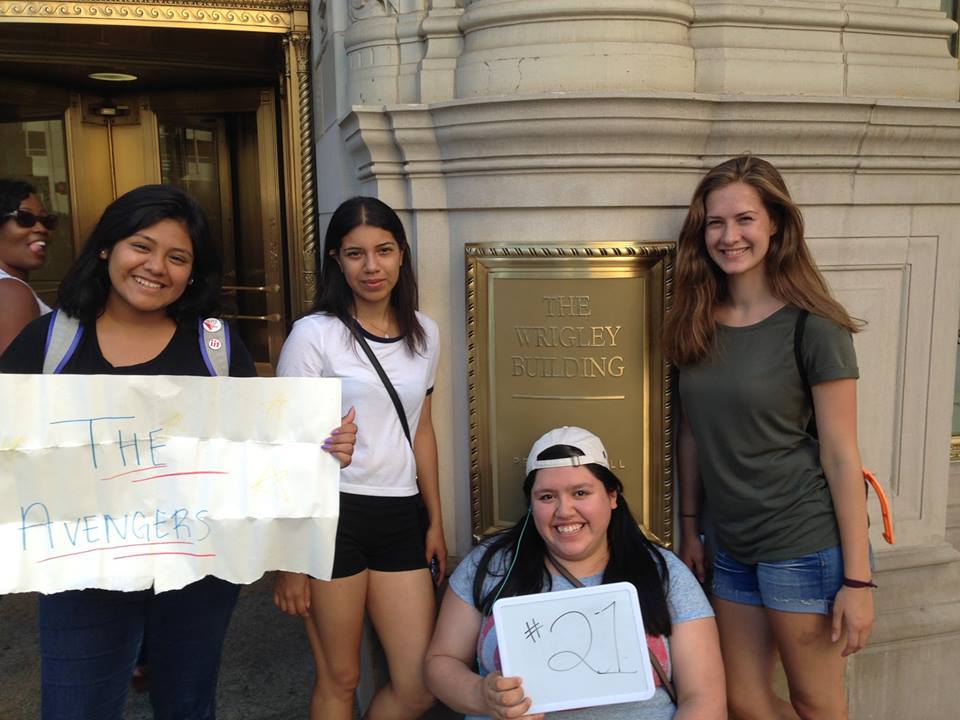 THE
AVENGERS
THE
WRIGLEY
BUILDING
#21